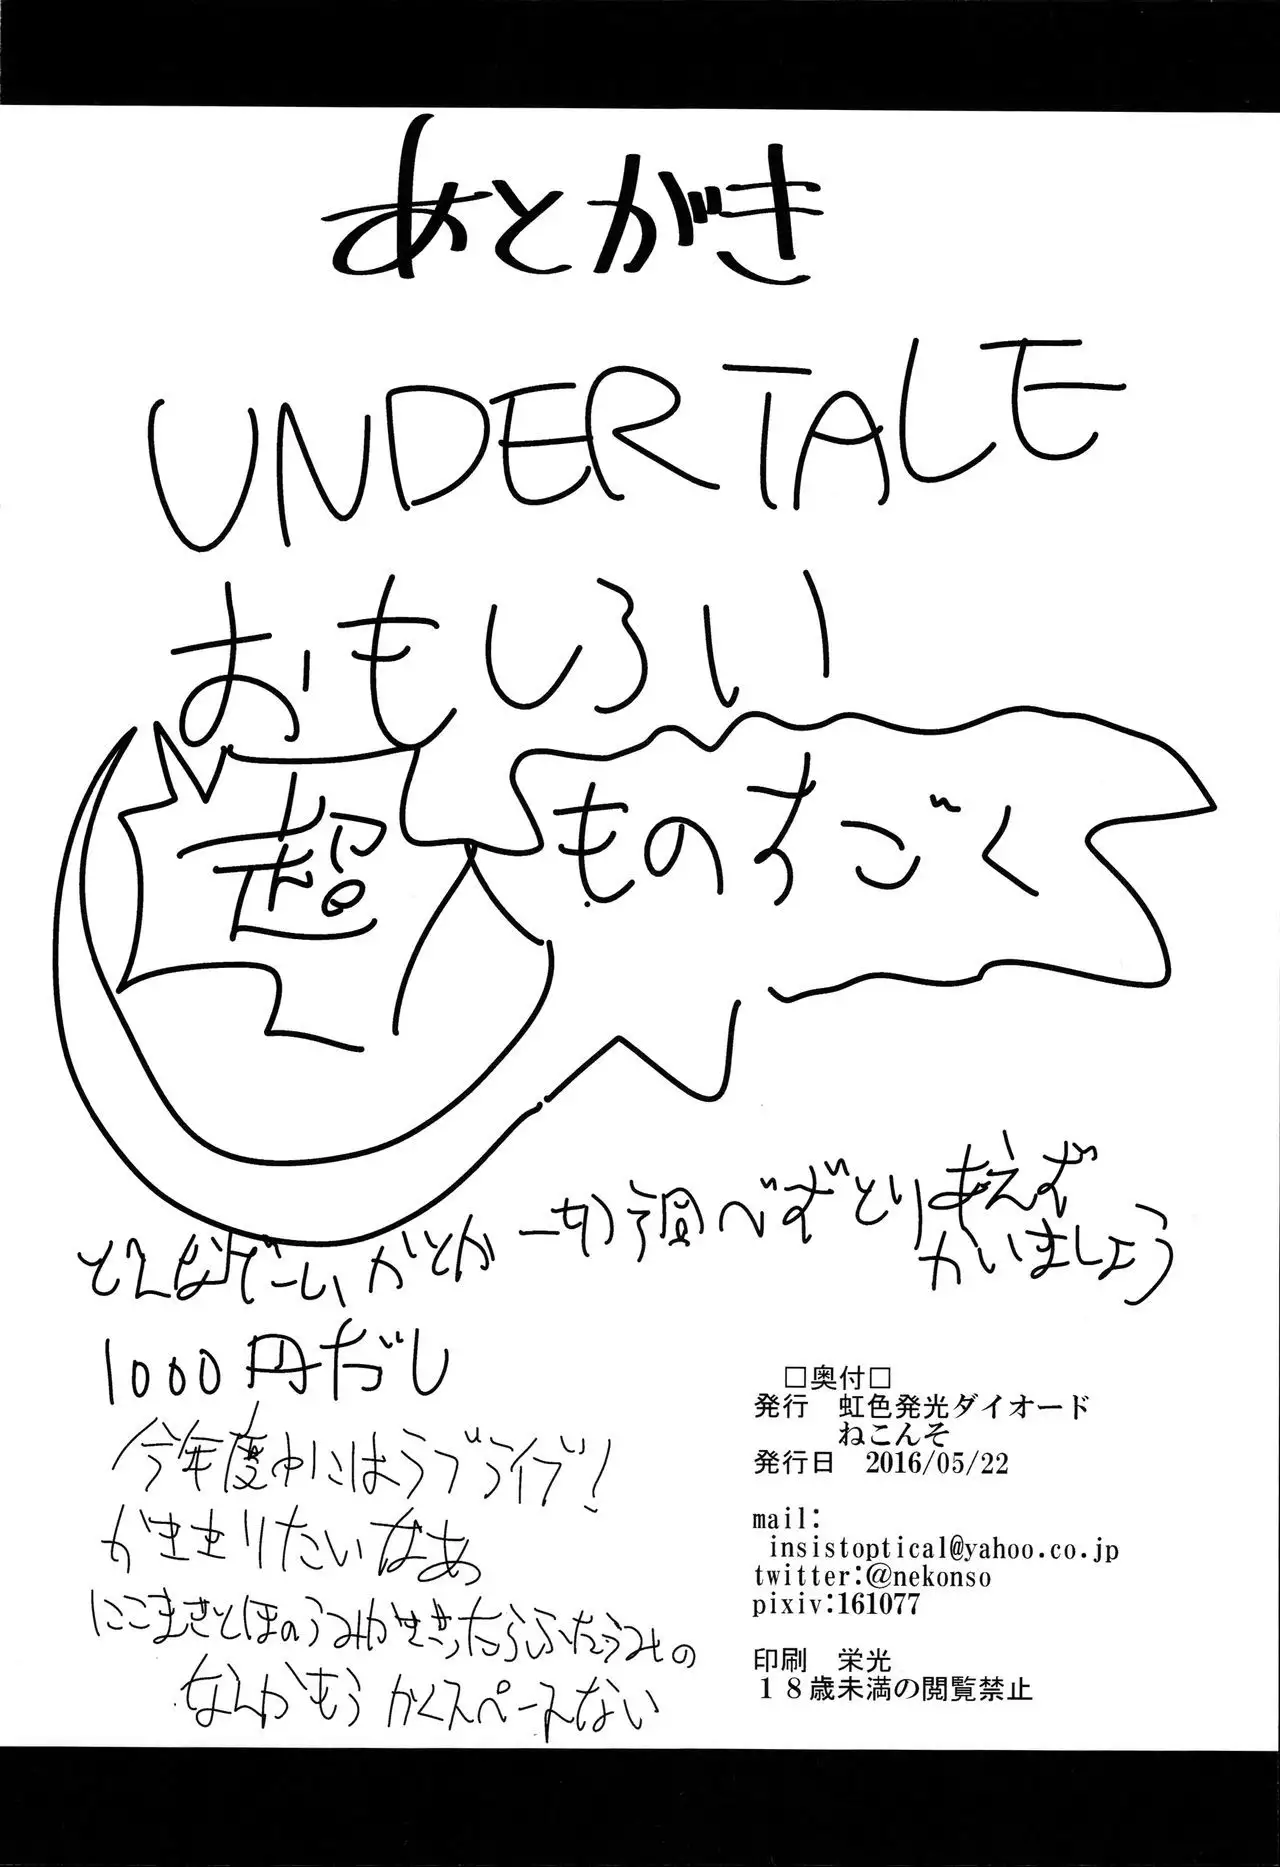 あとがき
UNDERTALE
おもしろい
超
ものすごく
どんなゲームかとか一切調べずとりあえず
かいましょう
1000円だし
今年度中にはラブライブ!
かききりたいなあ
にこまきとほのうみかききったらふたりうみの
なんかもうかくスペースない
□奥付□
発行 虹色発光ダイオード
ねこんそ
発行日 2016/05/22
mail:
insistoptical@yahoo.co.jp
twitter:@nekonso
pixiv:161077
印刷 栄光
18歳未満の閲覧禁止